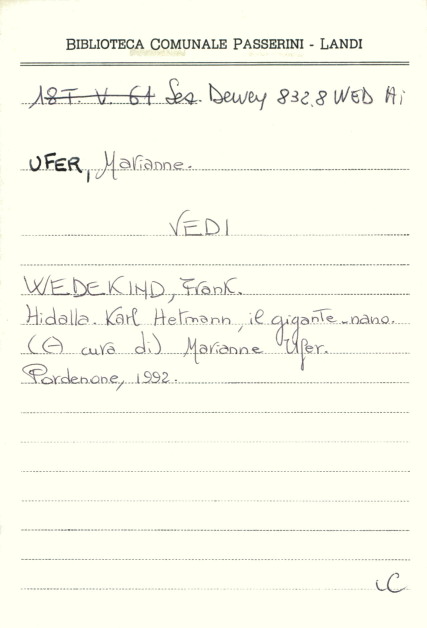 BIBLIOTECA COMUNALE PASSERINI - LANDI
18T. V. 61 Ses. Dewey 832.8 WED Hi
UFER, Marianne.
VEDI
WEDEKIND, Frank.
Hidalla. Karl Hetmann, il gigante-nano.
(A cura di) Marianne Ufer.
Pordenone, 1992.
iC